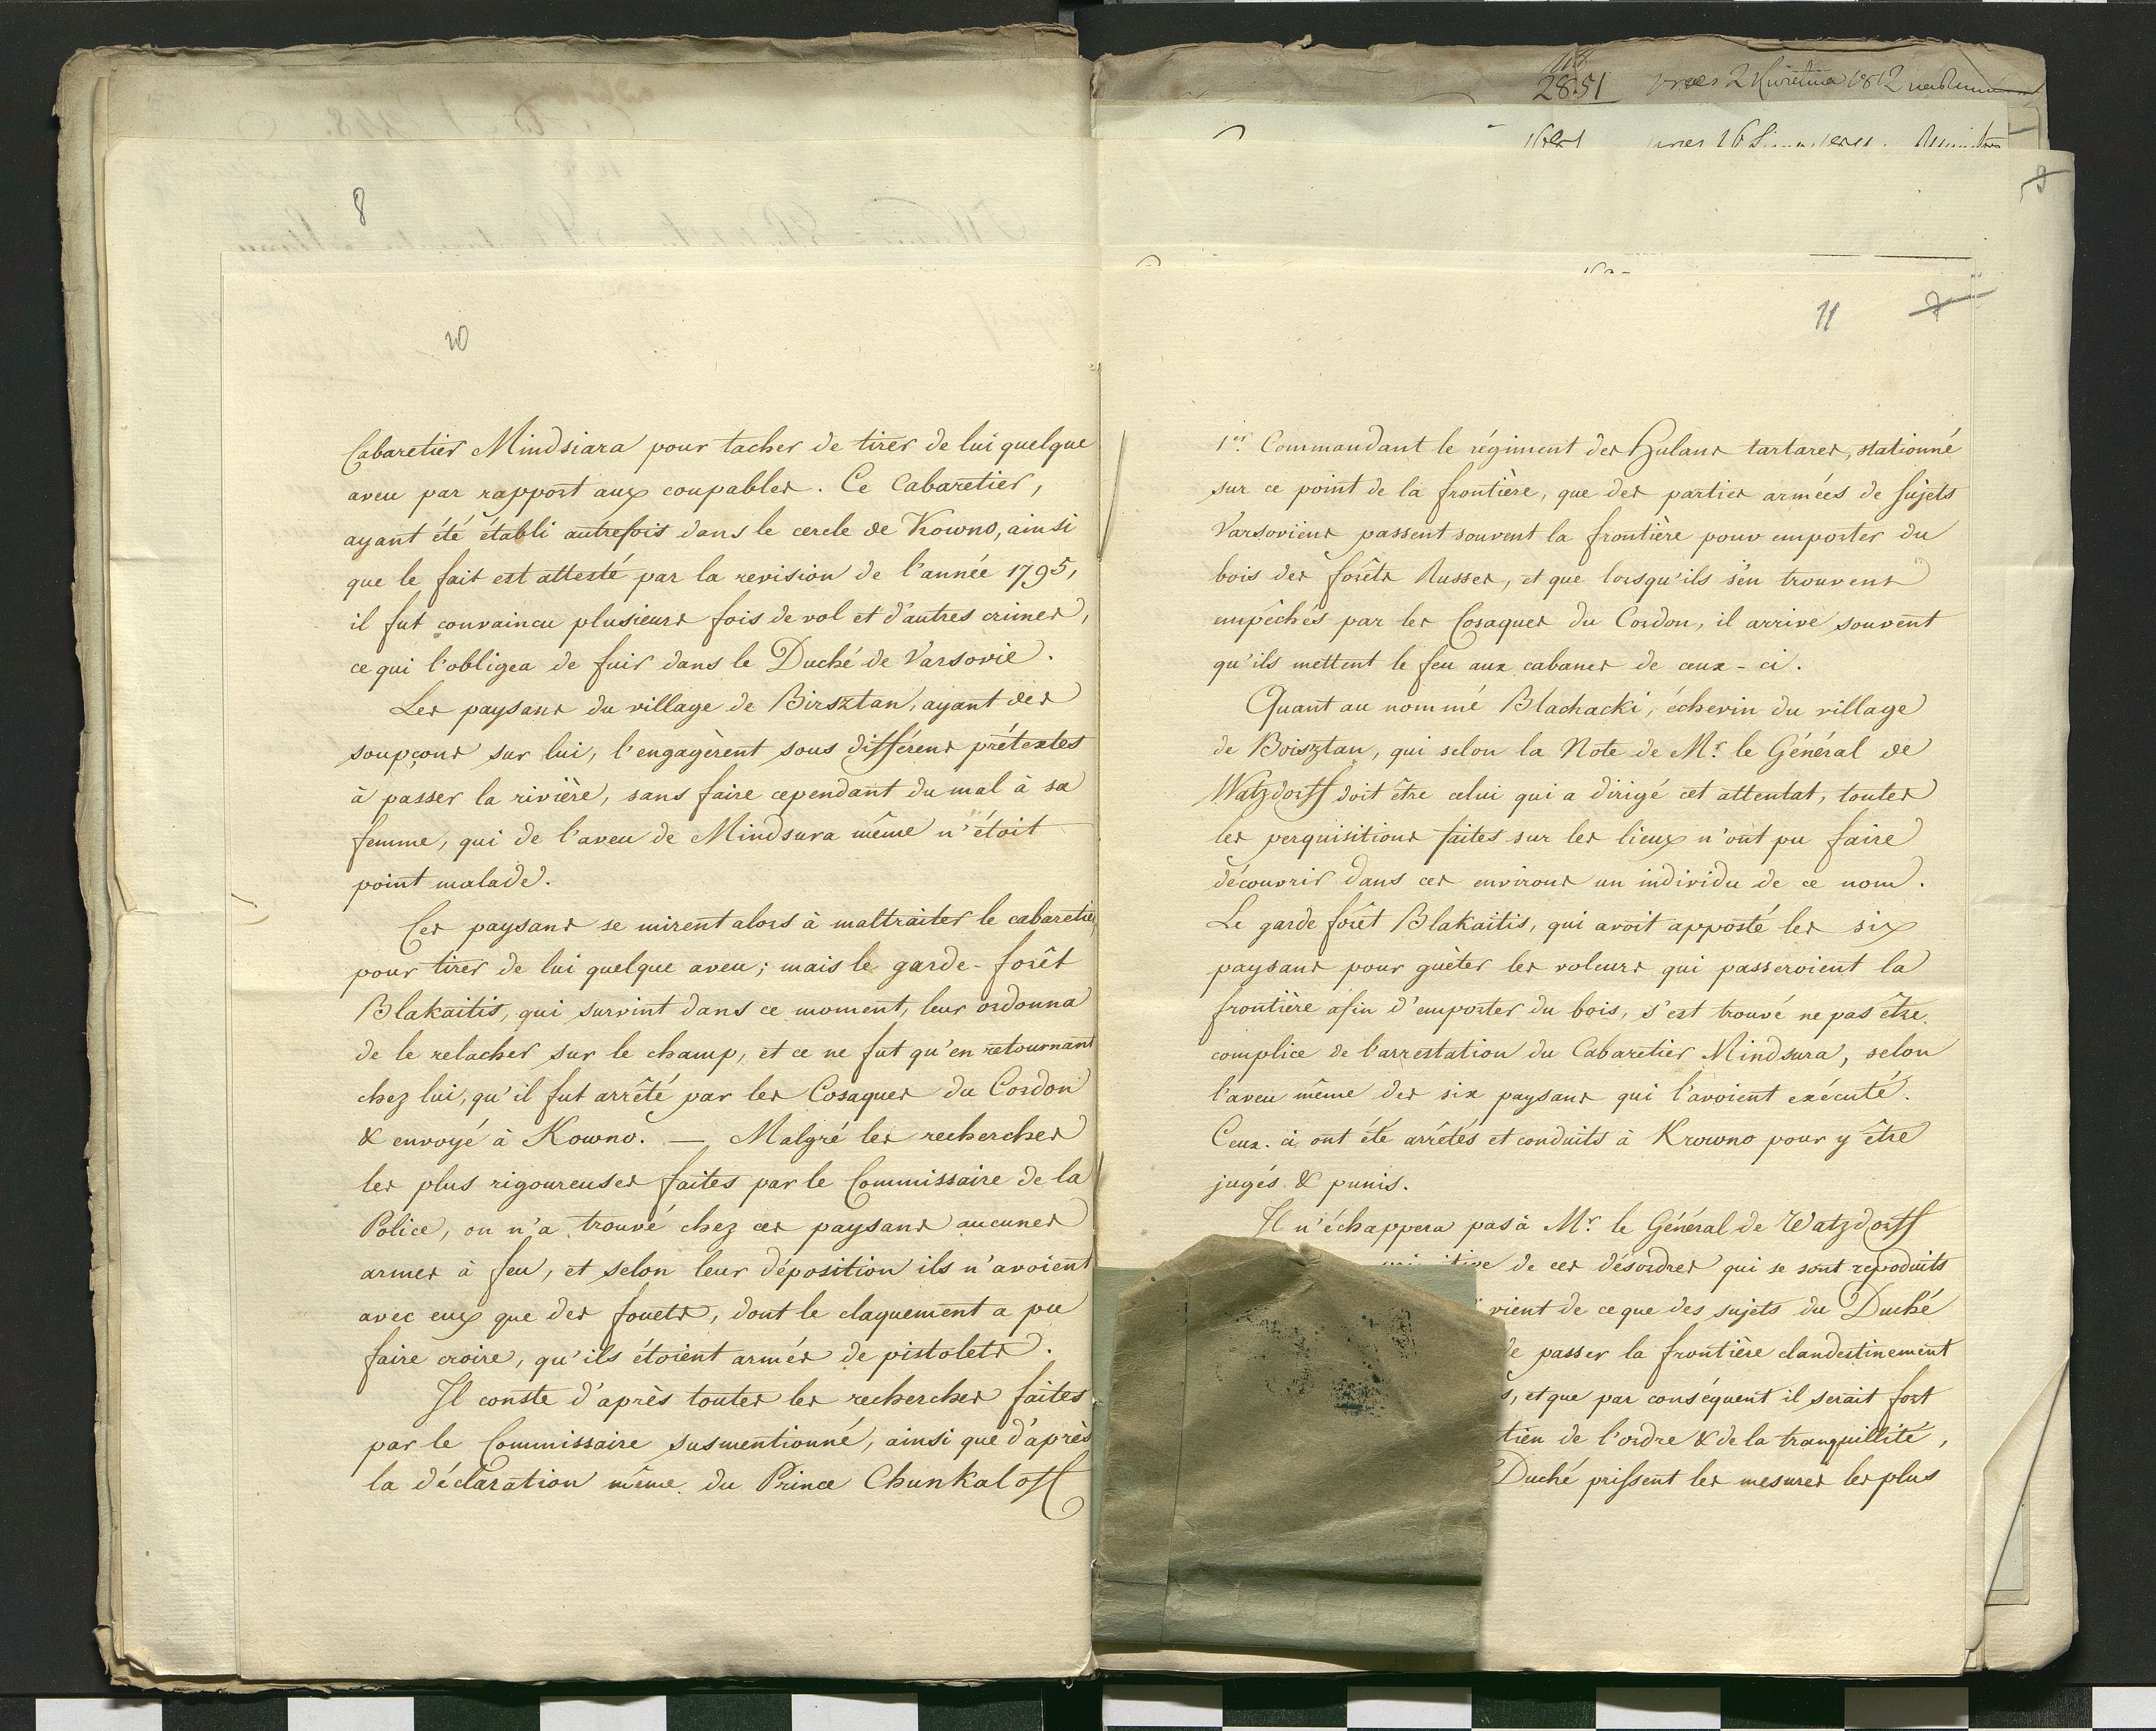 8
10
Cabaretier Mindsiara pour tacher de tirer de lui quelque
aveu par rapport aux coupables. Ce Cabaretier,
ayant été établi autrefois dans le cercle de Kowno, ainsi
que le fait est attesté par la revision de l'année 1795,
il fut convaincu plusieurs fois de vol et d'autres crimes,
ce qui l'obligea de fuir dans le Duché de Varsovie.
Les paysans du village de Birsztan, ayant des
soupçons sur lui, l'engagèrent sous différens prétextes
à passer la rivière, sans faire cependant du mal à sa
femme, qui de l'aveu de Mindsura même n'étoit
point malade.
Ces paysans se mirent alors à maltraiter le cabaretier
pour tirer de lui quelque aveu; mais le garde-forêt
Blakaitis, qui survint dans ce moment, leur ordonna
de le relacher sur le champ, et ce ne fut qu'en retournant
chez lui, qu'il fut arrêté par les Cosaques du Cordon
& envoyé à Kowno. — Malgré les recherches
les plus rigoureuses faites par le Commissaire de la
Police, on n'a trouvé chez ces paysans aucunes
armes à feu, et selon leur déposition ils n'avoient
avec eux que des fouets, dont le claquement a pu
faire croire, qu'ils étoient armés de pistolets.
Il conste d'après toutes les recherches faites
par le Commissaire susmentionné, ainsi que d'après
la déclaration même du Prince Chunkaloff
2851
2 Kwietnia 1812
11
1er. Commandant le régiment des Hulans tartares, stationné
sur ce point de la frontière, que des parties armées de sujets
Varsoviens passent souvent la frontière pour emporter du
bois des forêts Russes, et que lorsqu'ils s'en trouvent
empêchés par les Cosaques du Cordon, il arrive souvent
qu'ils mettent le feu aux cabanes de ceux-ci.
Quant au nommé Blachacki, échevin du village
de Boisztan, qui selon la Note de Mr. le Général de
Watzdorff doit être celui qui a dirigé cet attentat, toutes
les perquisitions faites sur les lieux n'ont pu faire
découvrir dans ces environs un individu de ce nom.
Le garde forêt Blakaitis, qui avoit apposté les six
paysans pour guèter les voleurs qui passeroient la
frontière afin d'emporter du bois, s'est trouvé ne pas être
complice de l'arrestation du Cabaretier Mindsura, selon
l'aveu même des six paysans qui l'avoient exécuté.
Ceux-ci ont été arrêtés et conduits à Krowno pour y être
jugés & punis.
Il n'échappera pas à Mr. le Général de Watzdorff
de ces désordres qui se sont reproduits
vient de ce que des sujets du Duché
de passer la frontière clandestinement
, et que par conséquent il serait fort
tien de l'ordre & de la tranquillité,
Duché prissent les mesures les plus